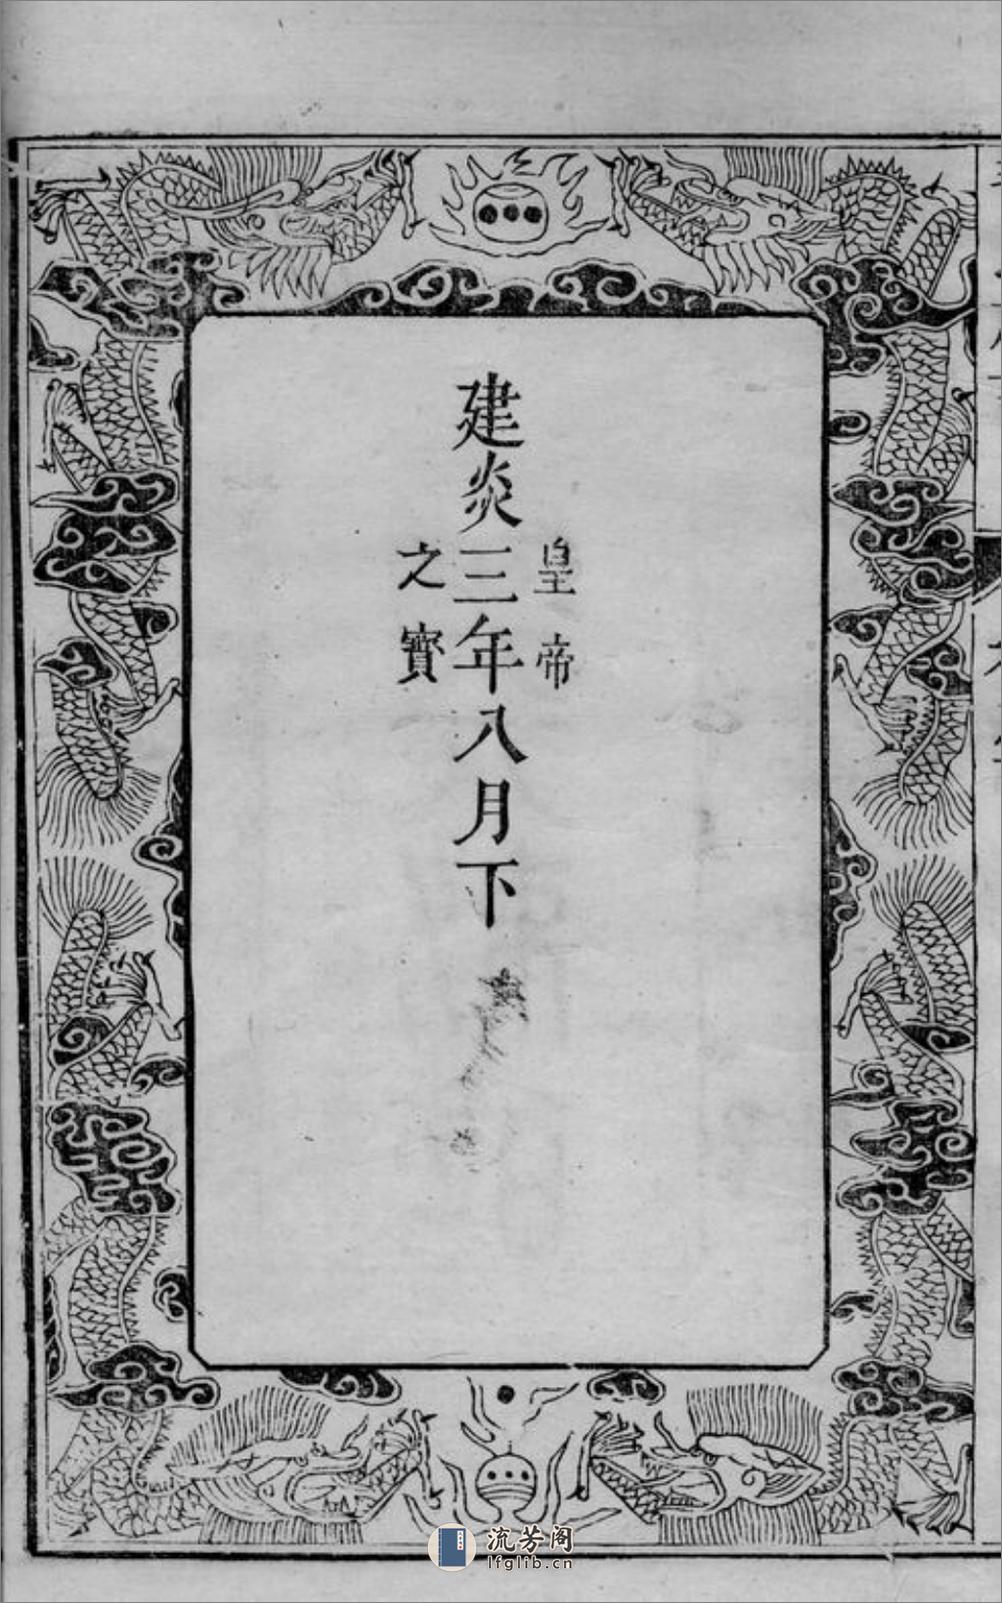 皇帝
建炎三年八月下
之寳
流芳阁
lfglib.cn